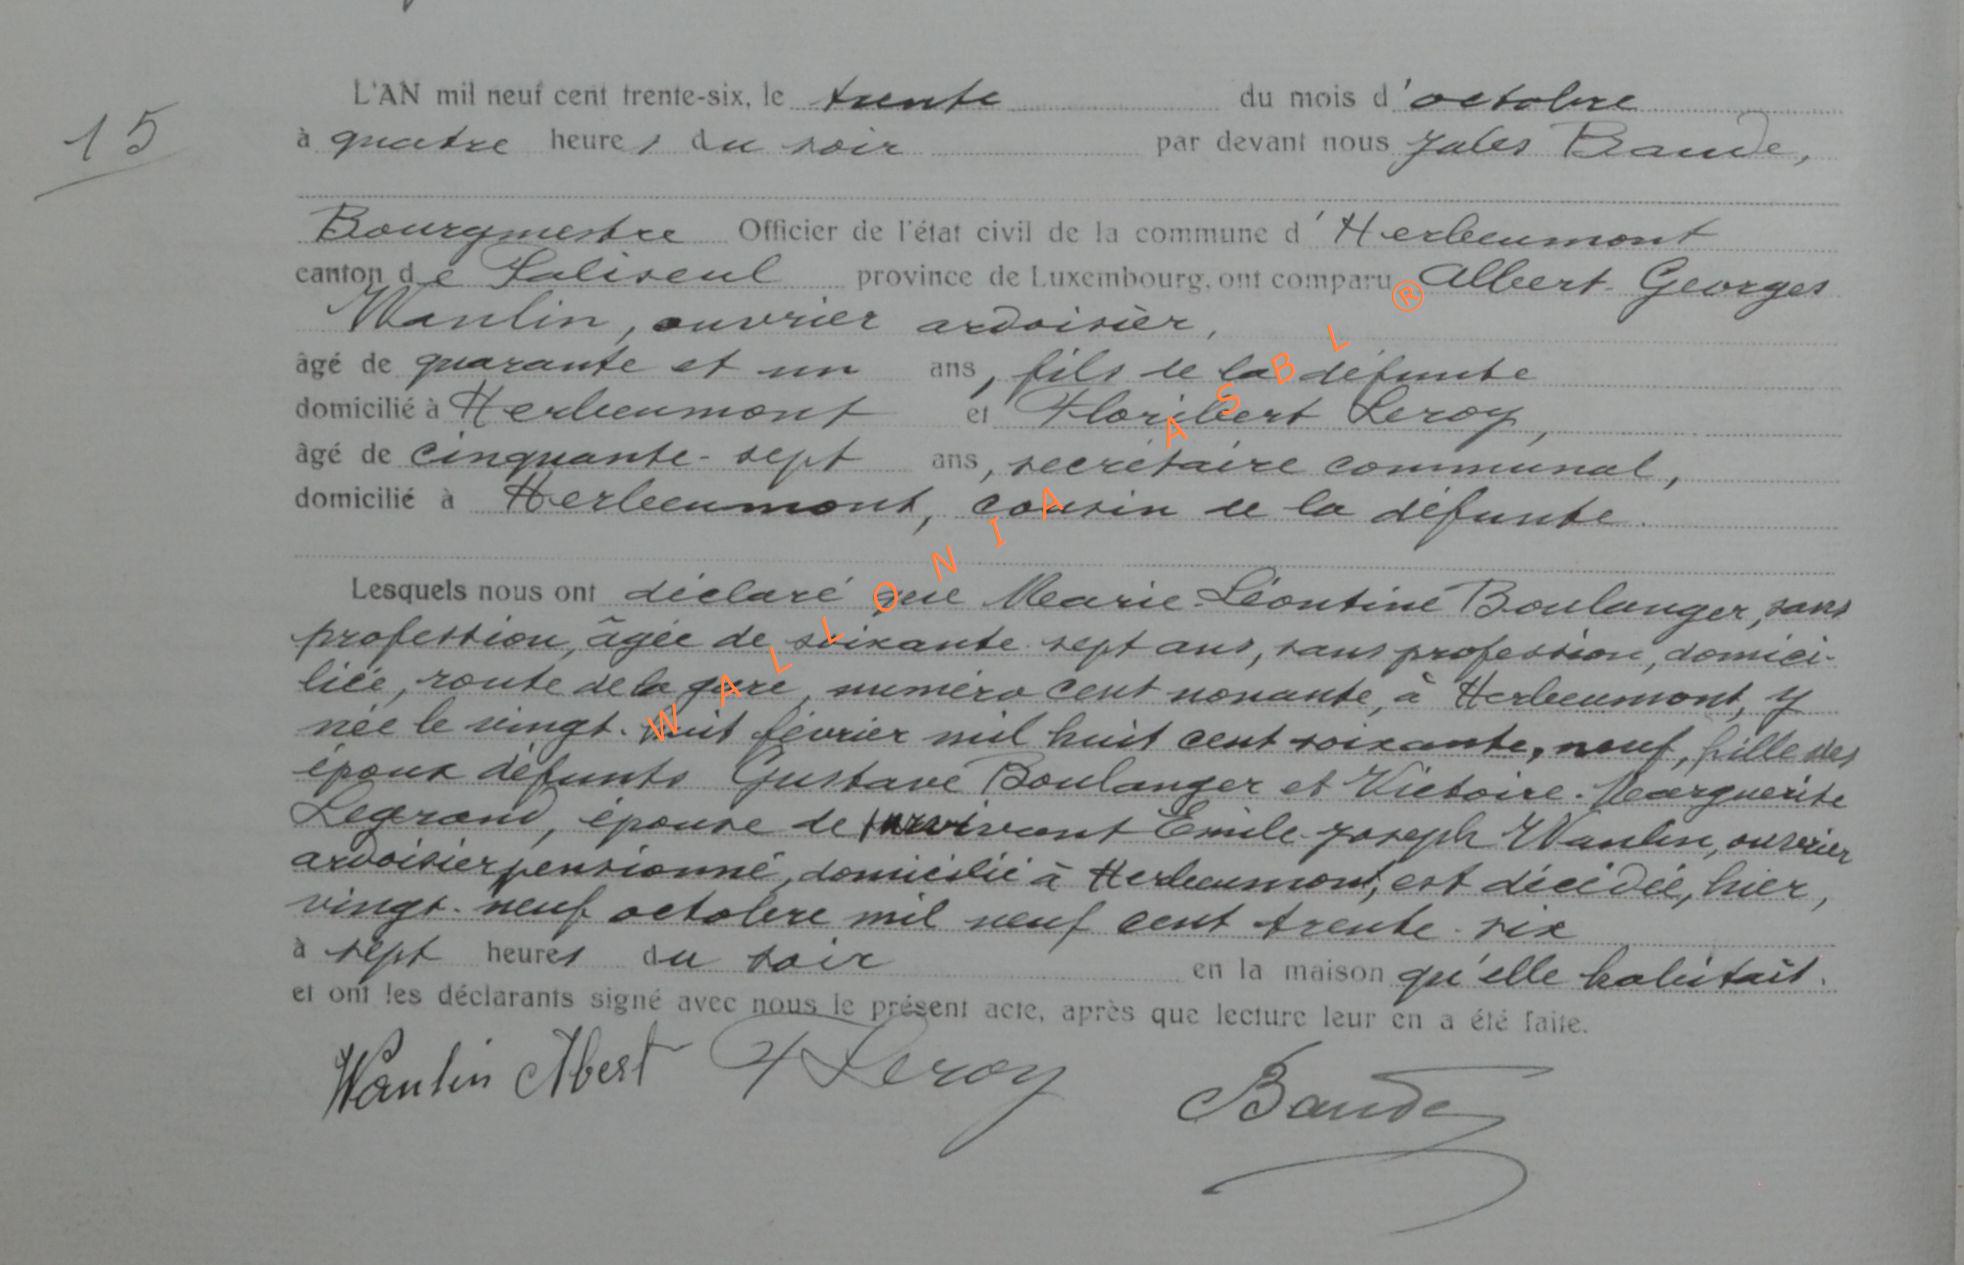 L'AN mil neuf cent trente-six, le trente du mois d'octobre
15
à quatre heures du soir par devant nous Jules Baude,
Bourgmestre Officier de l'état civil de la commune d'Herbeumont
canton de Paliseul province de Luxembourg, ont comparu Albert-Georges
Wanlin, ouvrier ardoisier,
âgé de quarante et un ans, fils de la défunte
domicilié à Herbeumont et Floribert Leroy,
âgé de cinquante-sept ans, secrétaire communal,
domicilié à Herbeumont, cousin de la défunte.
Lesquels nous ont déclaré que Marie-Léontine Boulanger, sans
profession, âgée de soixante-sept ans, sans profession, domici-
liée, route de la gare, numéro cent nonante, à Herbeumont, y
née le vingt-huit février mil huit cent soixante-neuf, fille des
époux défunts Gustave Boulanger et Victoire-Marguerite
Legrand, épouse de survivant Emile-Joseph Wanlin, ouvrier
ardoisier pensionné, domicilié à Herbeumont, est décédée, hier,
vingt-neuf octobre mil neuf cent trente-six
à sept heures du soir en la maison qu'elle habitait.
et ont les déclarants signé avec nous le présent acte, après que lecture leur en a été faite.
Wanlin Albert F Leroy Baude
WALLONIA ASBL ®